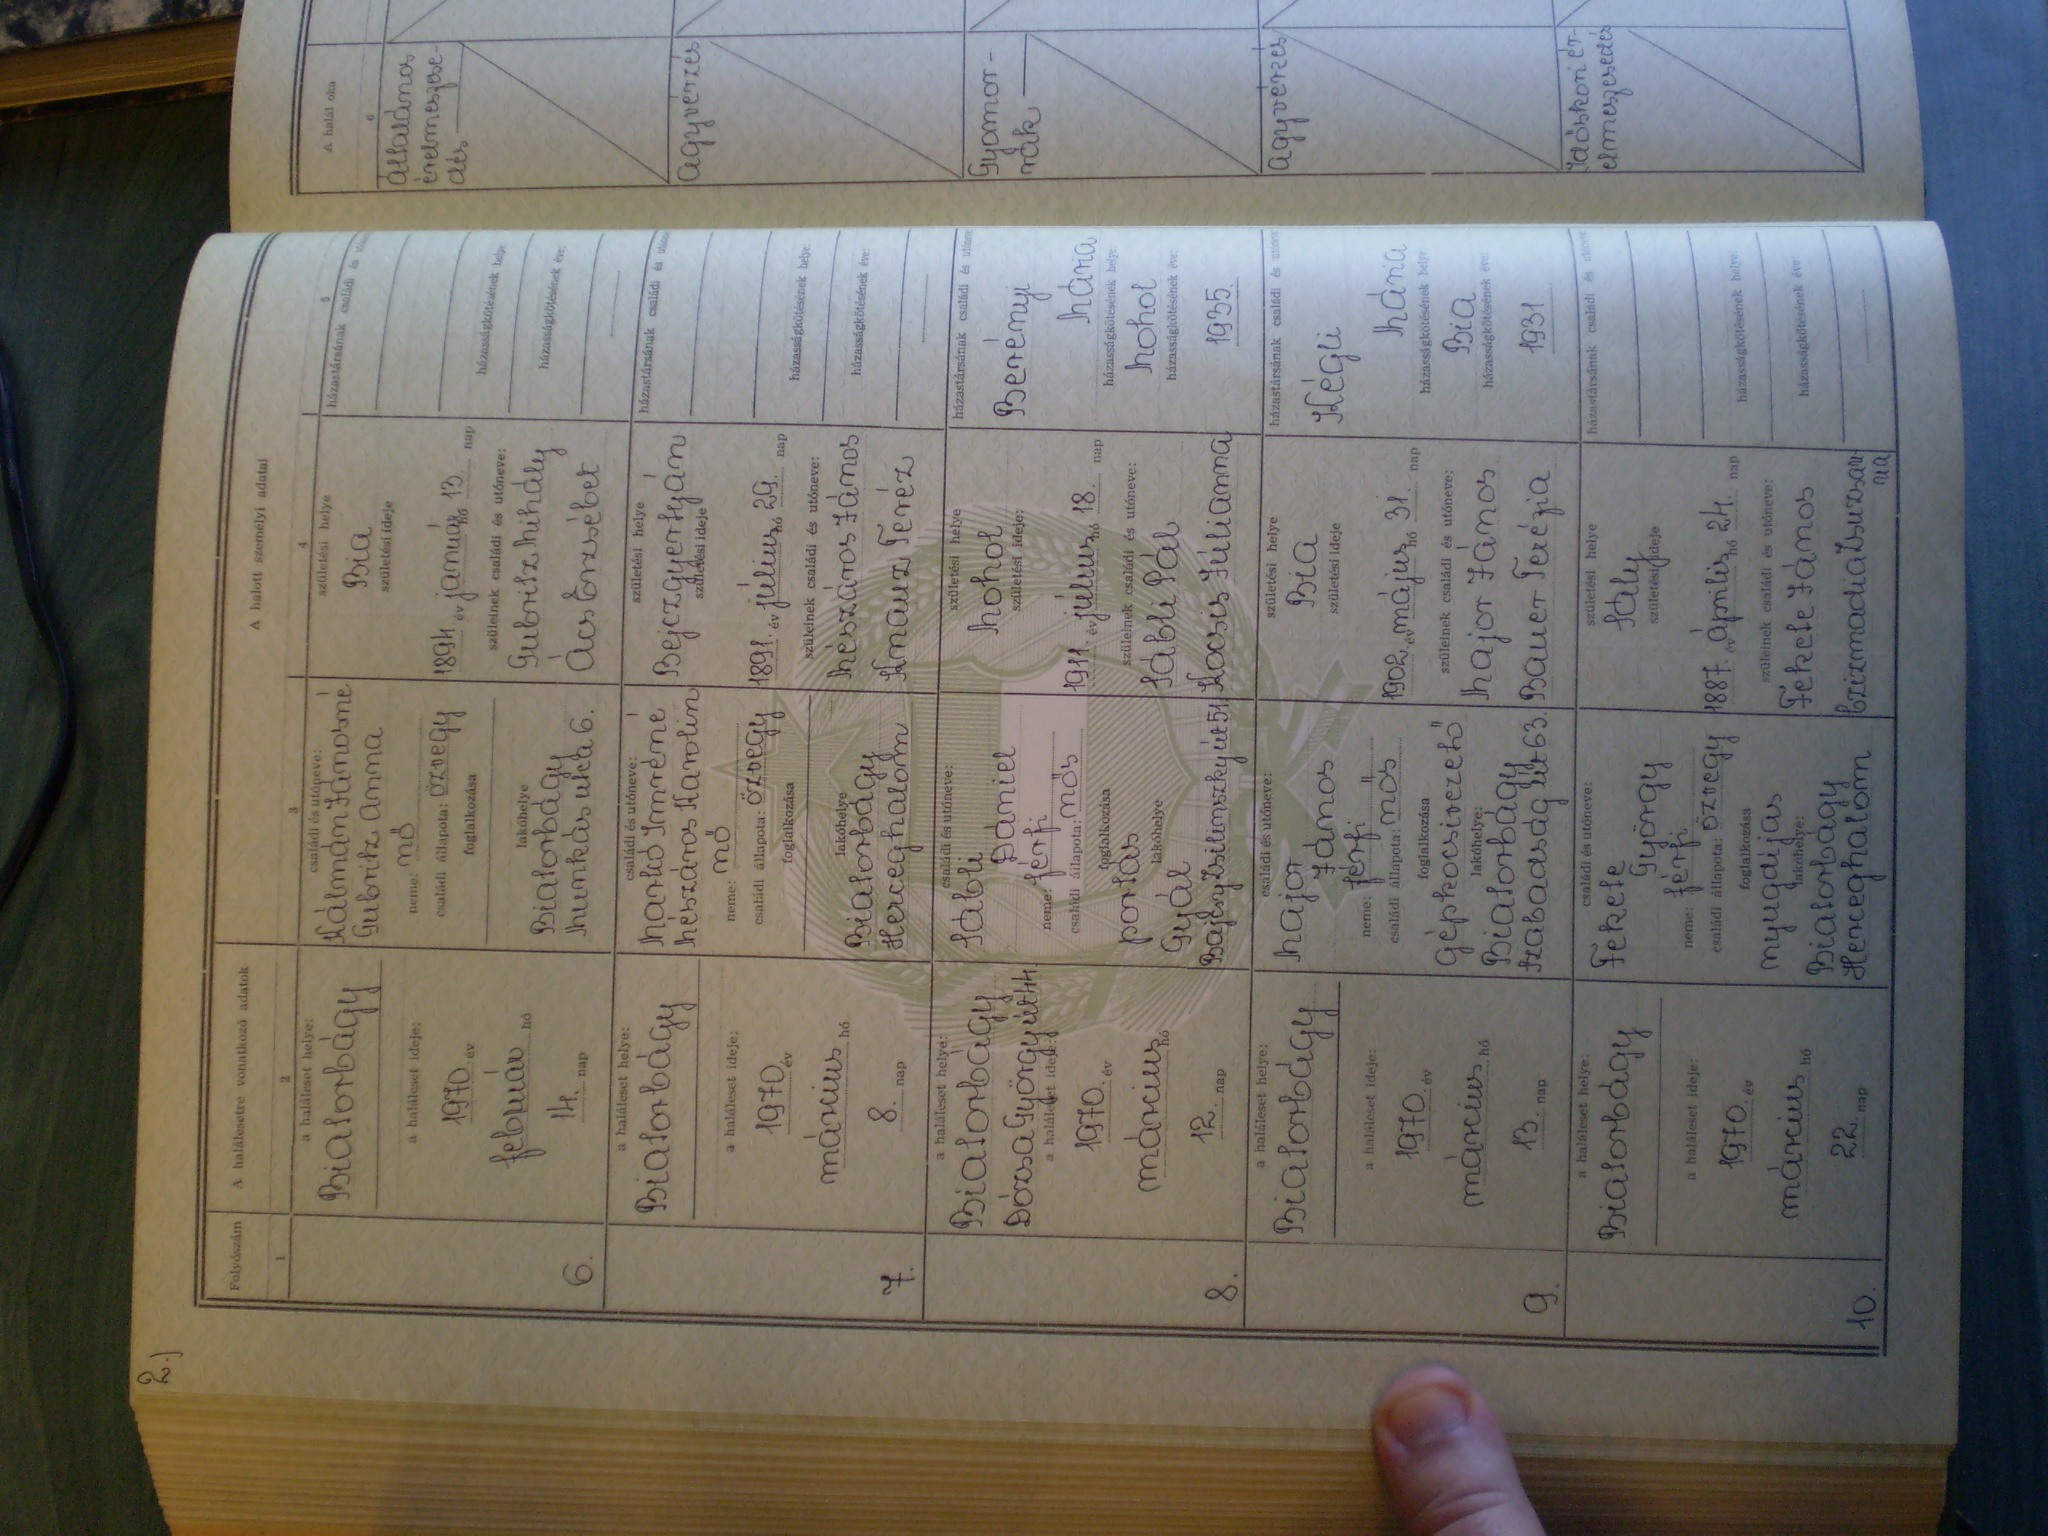 2.)
Folyószám
A halálesetre vonatkozó adatok
A halott személyi adatai
A halál oka
1
2
3
4
5
6
6.
a haláleset helye:
Biatorbágy
a haláleset ideje:
1970. év
február hó
14. nap
családi és utóneve:
Kálmán Jánosné
Gubritz Anna
neme: nő
családi állapota: özvegy
foglalkozása
lakóhelye
Biatorbágy
Munkás utca 6.
születési helye
Bia
születési ideje
1894. év január hó 13. nap
szüleinek családi és utóneve:
Gubritz Mihály
Ács Erzsébet
házastársának családi és
házasságkötésének helye
házasságkötésének éve:
Általános
érelmeszese-
dés
7.
a haláleset helye:
Biatorbágy
a haláleset ideje:
1970. év
március hó
8. nap
családi és utóneve:
Markó Imréné
Mészáros Karolin
neme: nő
családi állapota: özvegy
foglalkozása
lakóhelye
Biatorbágy
Herceghalom
születési helye
Bejczgyertyán
születési ideje
1891. év július hó 29. nap
szüleinek családi és utóneve:
Mészáros János
Knausz Teréz
házastársának családi és
házasságkötésének helye:
házasságkötésének éve:
Agyvérzés
8.
a haláleset helye:
Biatorbágy
Dózsa György út 44.
a haláleset ideje:
1970. év
március hó
12. nap
családi és utóneve:
Sábli
Dániel
neme: férfi
családi állapota: nős
foglalkozása
portás
lakóhelye
Gyál
Bajcsy Zsilinszky út 51.
születési helye
Mohol
születési ideje:
1911. év július hó 18. nap
szüleinek családi és utóneve:
Sábli Pál
Kocsis Julianna
házastársának családi és
Berényi
Mária
házasságkötésének helye:
Mohol
házasságkötésének éve:
1935.
Gyomor-
rák
9.
a haláleset helye:
Biatorbágy
a haláleset ideje:
1970. év
március hó
13. nap
családi és utóneve:
Major
János
neme: férfi
családi állapota: nős
foglalkozása
Gépkocsivezető
lakóhelye:
Biatorbágy
Szabadság út 63.
születési helye
Bia
születési ideje
1902. év május hó 31. nap
szüleinek családi és utóneve:
Major János
Bauer Terézia
házastársának családi és
Kégli
Mária
házasságkötésének helye
Bia
házasságkötésének éve:
1931.
Agyvérzés
10.
a haláleset helye:
Biatorbágy
a haláleset ideje:
1970. év
március hó
22. nap
családi és utóneve:
Fekete
György
neme: férfi
családi állapota: özvegy
foglalkozása
nyugdíjas
lakóhelye:
Biatorbágy
Herceghalom
születési helye
születési ideje
1887. év április hó 24. nap
szüleinek családi és utóneve:
Fekete János
Csizmadia Zsuzsan-
na
házastársának családi és
házasságkötésének helye:
házasságkötésének éve:
Időskori ér-
elmeszesedés